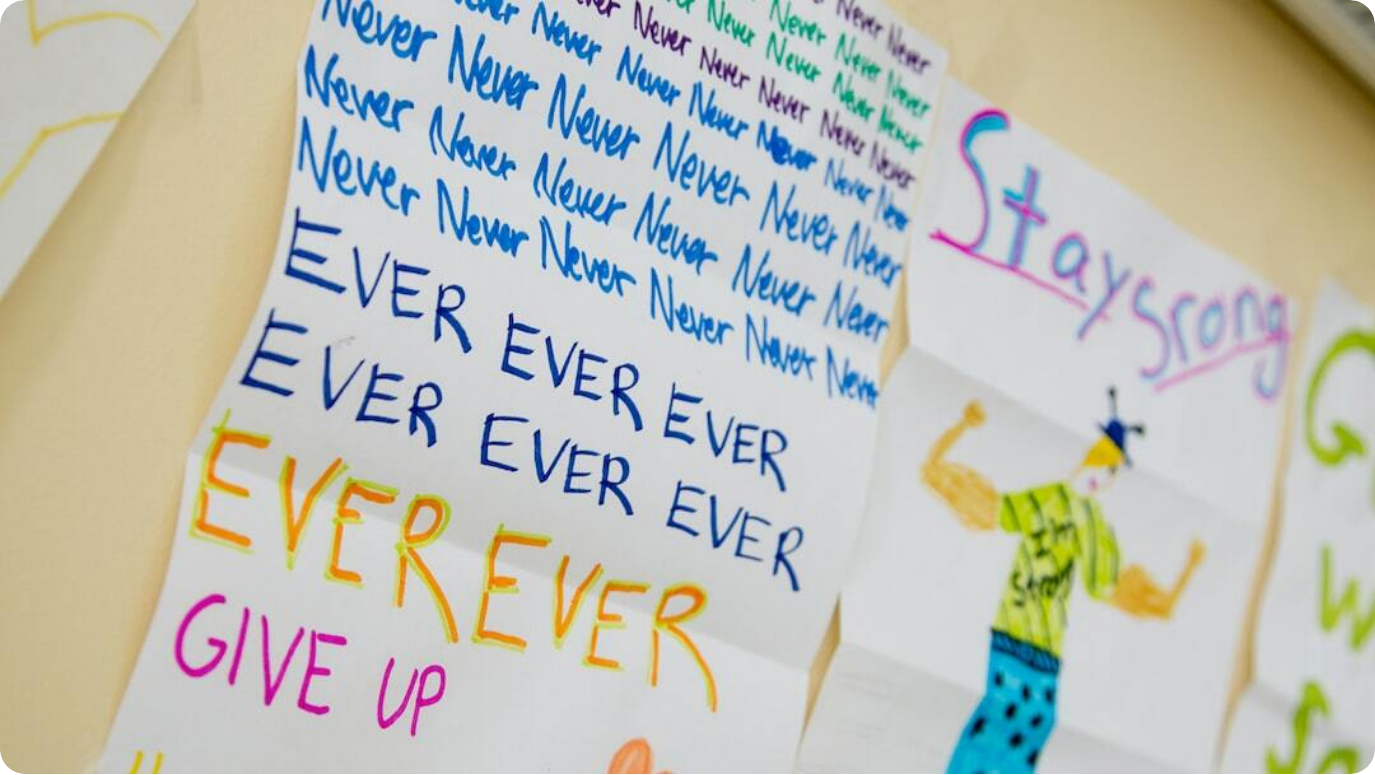 Never Never
Never Never Never
Never Never Never Never
Never Never Never Never Never
Never Never Never Never Never Never
Never Never Never Never Never Never
Never Never Never Never Never Never
Never Never Never Never Never
EVER EVER EVER
EVER EVER EVER
EVER EVER
GIVE UP
Stay srong
I'm
Strong